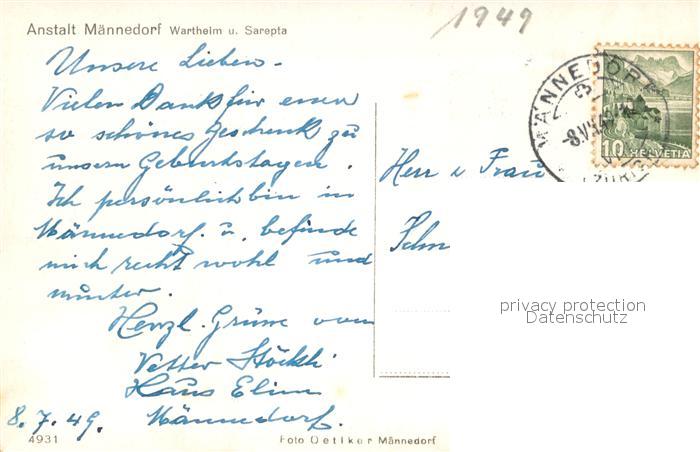 Anstalt Männedorf Wartheim u. Sarepta
1949
Unsere Lieben -
Vielen Dank für euer
so schönes Geschenk zu
unsern Geburtstagen.
Ich persönlich bin in
Männedorf. u. befinde
mich recht wohl und
munter.
Herzl. Grüsse vom
Vetter Stöckli
Haus Elim
8.7.49. Männedorf.
4931
Foto Oetiker Männedorf
MÄNNEDORF
10 HELVETIA
Herr u Frau
privacy protection
Datenschutz